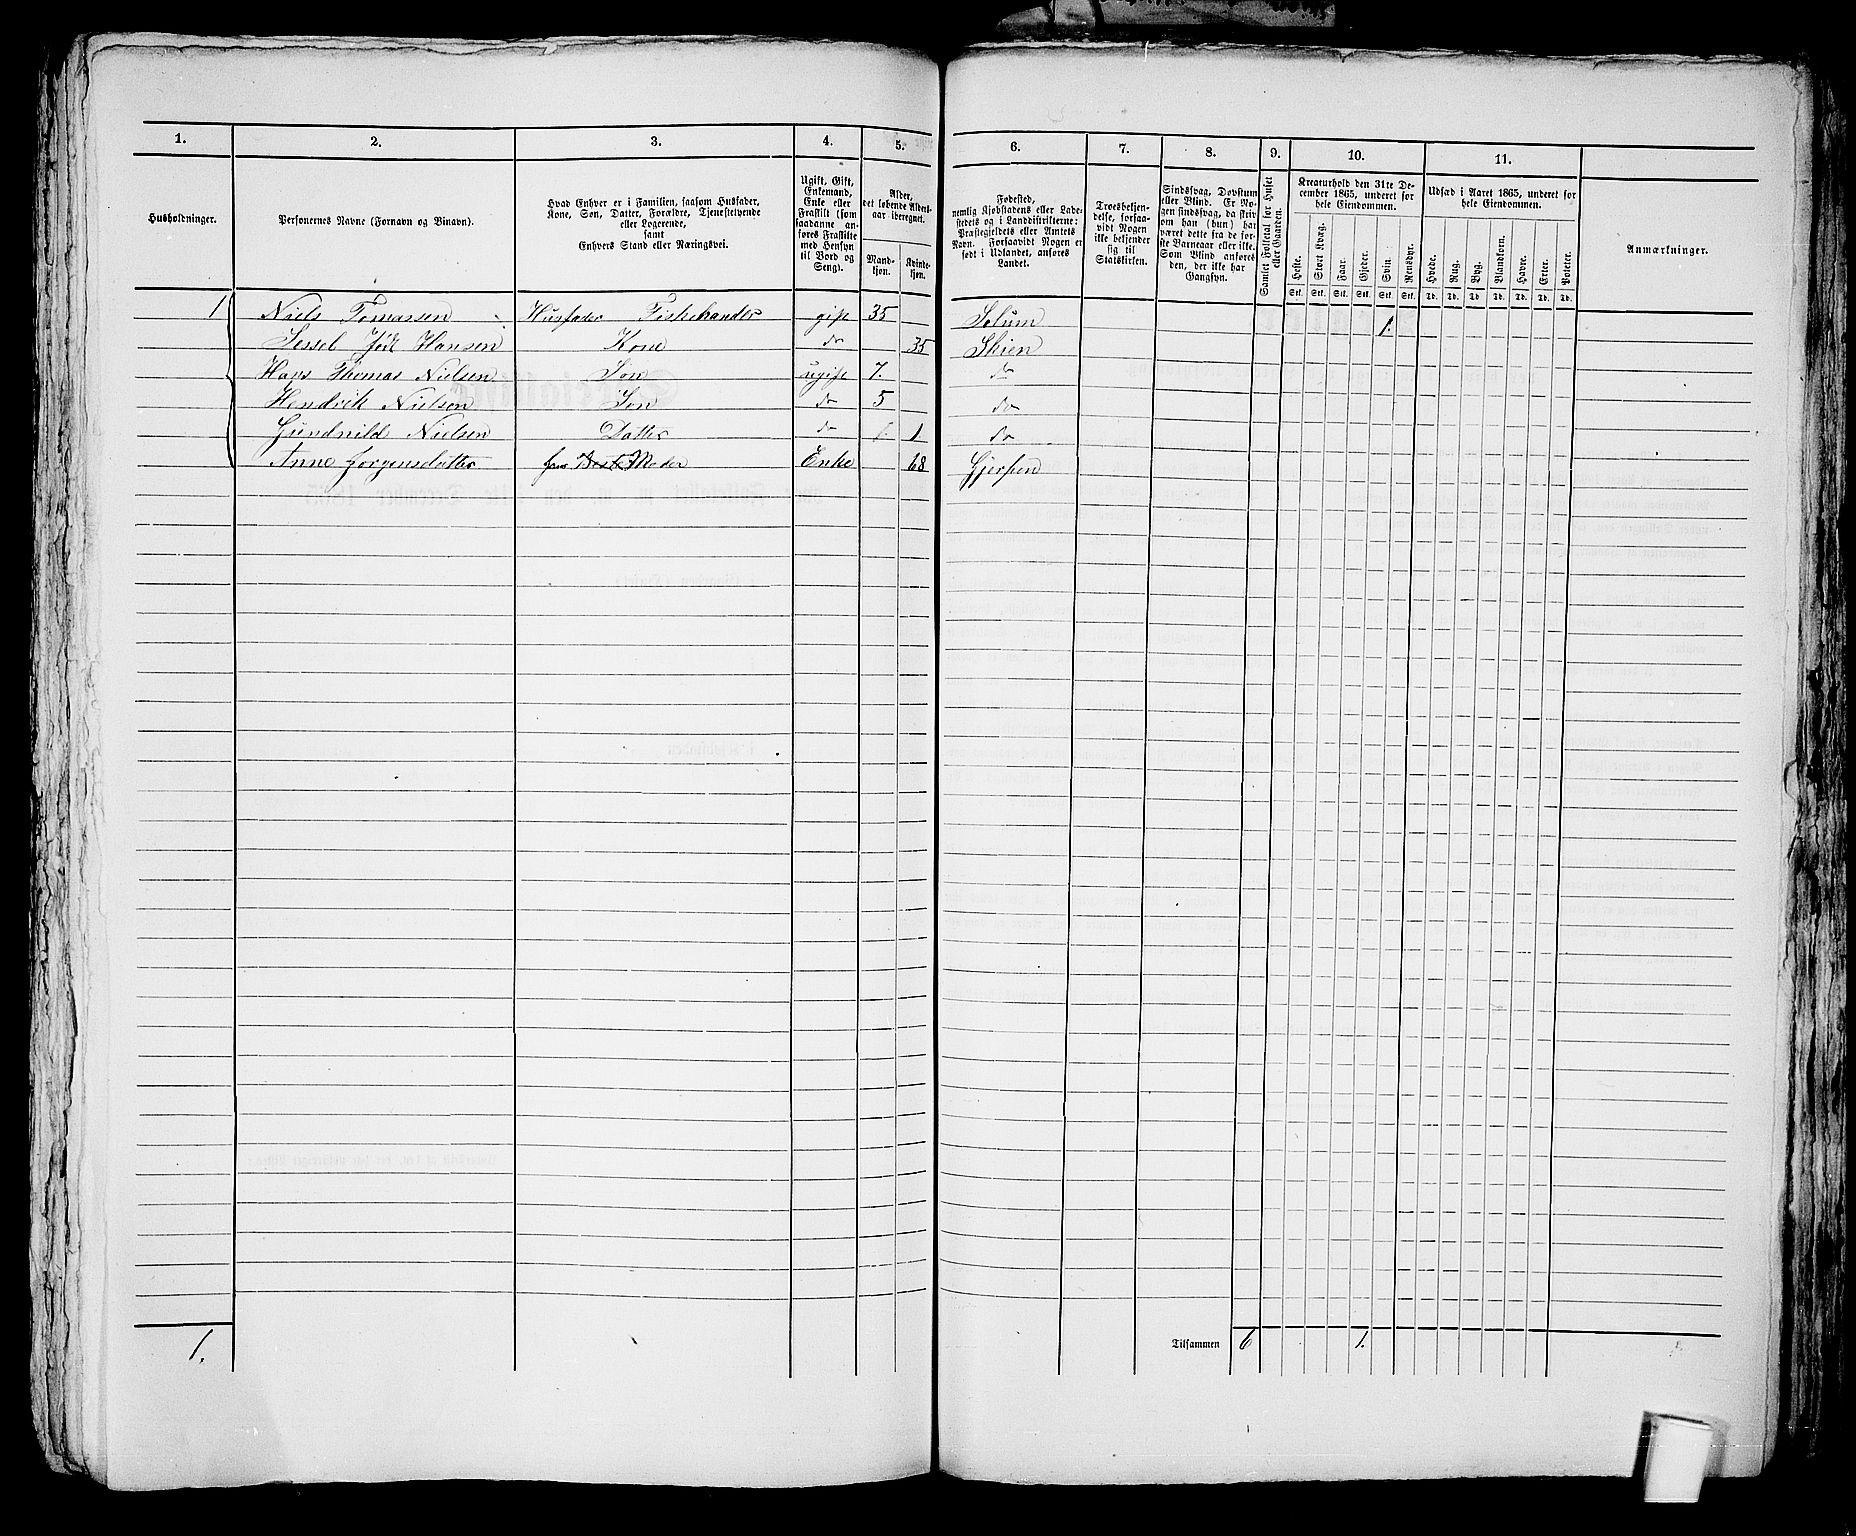 1. 2. 3. 4. 5. 6. 7. 8. 9. 10. 11.
Husholdninger.
Personernes Navne (Fornavn og Binavn).
Hvad Enhver er i Familien, saasom Husfader,
Kone, Søn, Datter, Forældre, Tjenestetyende
eller Logerende,
samt
Enhvers Stand eller Næringsvei.
Ugift, Gift,
Enkemand,
Enke eller
Fraskilt (som
saadanne an-
føres Fraskilte
med Hensyn
til Bord og
Seng).
Alder,
det løbende Alders-
aar iberegnet.
Mand-
kjøn.
Kvinde-
kjøn.
Fødested,
nemlig Kjøbstadens eller Lade-
stedets og i Landdistrikterne:
Præstegjeldets eller Amtets
Navn. Forsaavidt Nogen er
født i Udlandet, anføres
Landet.
Troesbekjen-
delse, forsaa-
vidt Nogen
ikke bekjender
sig til
Statskirken.
Sindssvag, Døvstum
eller Blind. Er No-
gen sindssvag, da skriv
om han (hun) har
været dette fra de før-
ste Barneaar eller ikke.
Som Blind anføres
den, der ikke har
Gangsyn.
Samlet Folketal for Huset
eller Gaarden.
Kreaturhold den 31te De-
cember 1865, underet for
hele Eiendommen.
Heste. Stort Kvæg. Faar. Gjeder. Sviin. Rensdyr.
Stk. Stk. Stk. Stk. Stk. Stk.
Udsæd i Aaret 1865, underet for
hele Eiendommen.
Hvede. Rug. Byg. Blandkorn. Havre. Erter. Poteter.
Td. Td. Td. Td. Td. Td. Td.
Anmærkninger.
1 Niels Tomassen Husfader Fiskehandler gift 35 Solum 1.
Jødt Hansen Kone do 35 Skien
Hans Thomas Nielsen Søn ugift 7. do
Hendrik Nielsen Søn do 5 do
Gundnild Nielsen Datter do 1 do
Anne Jorgensdatter Moder Enke 68 Gjerpen
1. Tilsammen 6 1.